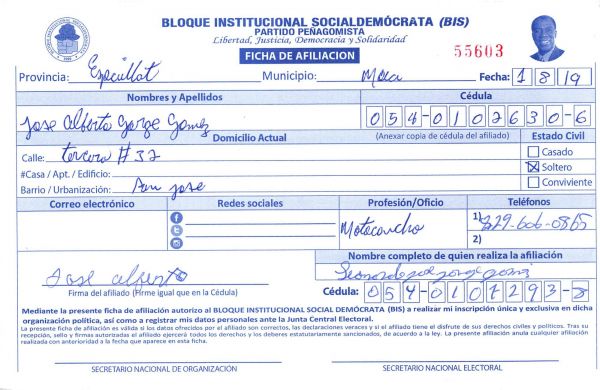 BLOQUE INSTITUCIONAL SOCIALDEMÓCRATA (BIS)
PARTIDO PEÑAGOMISTA
Libertad, Justicia, Democracia y Solidaridad
FICHA DE AFILIACION
55603
Provincia: Espaillat Municipio: Moca Fecha: 1 8 19
Nombres y Apellidos Cédula
Jose Alberto Jorge Gomez 054-0102630-6
Domicilio Actual (Anexar copia de cédula del afiliado) Estado Civil
Calle: tercera #32 Casado
#Casa / Apt. / Edificio: Soltero
Barrio / Urbanización: San jose Conviviente
Correo electrónico Redes sociales Profesión/Oficio Teléfonos
Motoconcho 1) 829-606-0865
2)
Nombre completo de quien realiza la afiliación
Jose alberto jorge
Firma del afiliado (Firme igual que en la Cédula) Cédula: 054-0107293-8
Mediante la presente ficha de afiliación autorizo al BLOQUE INSTITUCIONAL SOCIAL DEMÓCRATA (BIS) a realizar mi inscripción única y exclusiva en dicha
organización política, así como a registrar mis datos personales ante la Junta Central Electoral.
La presente ficha de afiliación es válida si los datos ofrecidos por el afiliado son correctos, las declaraciones veraces y si el afiliado tiene el disfrute de sus derechos civiles y políticos. Tras su
recepción, sello y firmas autorizadas el afiliado ejercerá todos los derechos y los deberes estatutariamente sancionados, de acuerdo a la ley. La presente afiliación anula cualquier afiliación
realizada con anterioridad a la fecha que aparece en esta ficha.
SECRETARIO NACIONAL DE ORGANIZACIÓN SECRETARIO NACIONAL ELECTORAL